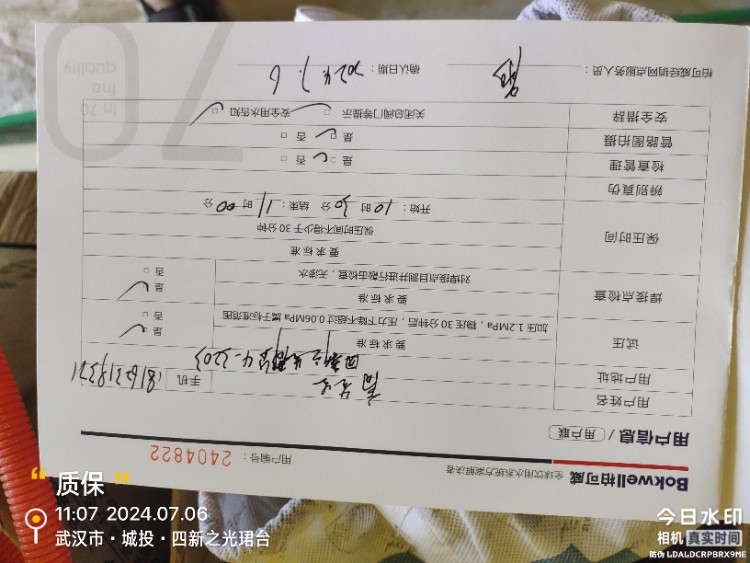 Bokwell柏可威 全球饮用水系统方案解决者
用户编号： 2404822
用户信息 / 用户联
用户姓名
用户地址 手机
试压 要求标准 是
加压1.2MPa，稳压30分钟后，压力下降不超过0.06MPa属于标准范围 否
焊接点检查 要求标准 是
对焊接点目测并进行敲击检查，无渗水 否
保压时间 要求标准
保压时间不得少于30分钟
开始：10时30分 结束：11时00分
辨别真伪
检查管理 是 否
管路图拍摄 是 否
安全措辞 关闭总阀门等提示 安全用水告知
柏可威经销网点服务人员： 确认日期： 2024.7.6
70
In 70
the
quality
质保
11:07 2024.07.06
武汉市·城投·四新之光珺台
今日水印
相机 真实时间
防伪 LDALDCRPBRX9ME